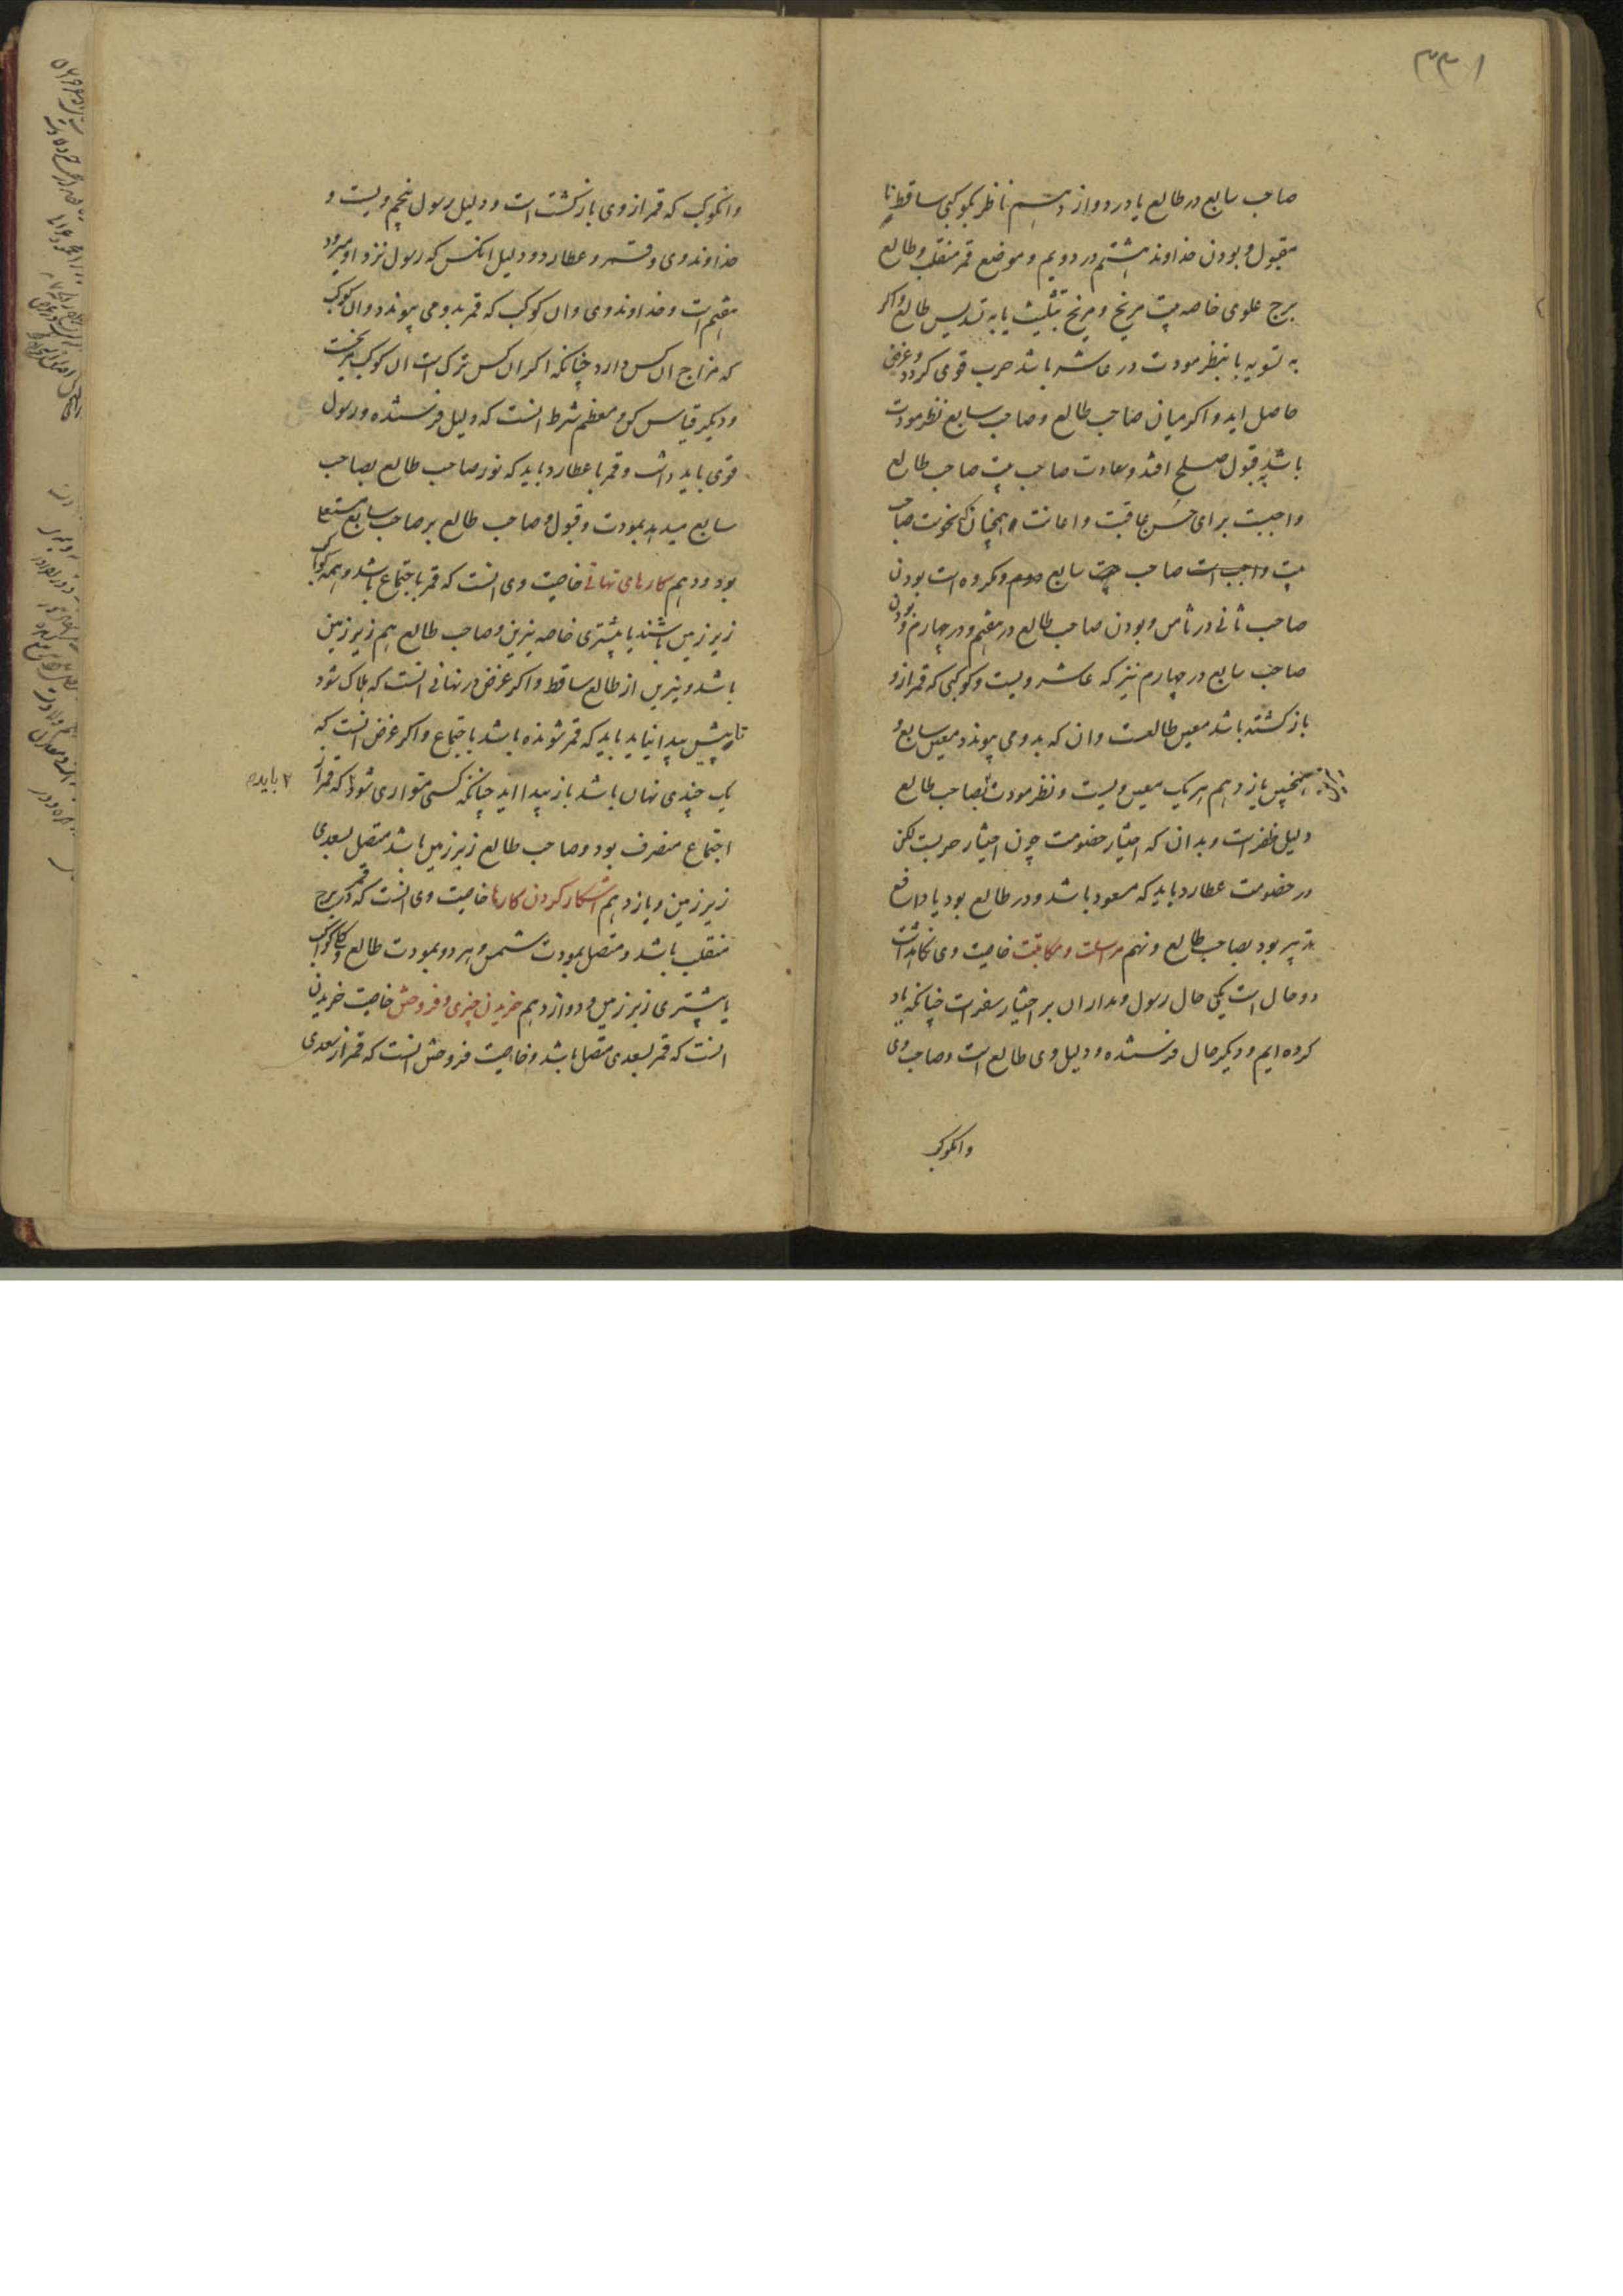 ۳۳۰۱
صاحب سابع در طالع یا در دوازدهم ناظر بکوکبی ساقط نا
مقبول و بودن خداوند هشتم در دویم و موضع قمر منقلب و طالع
برج علوی خاصه بیت مریخ و مریخ بتثلیث یا به تسدیس طالع و اکر
به تسویه با بنظر مودت در عاشر باشد حرب قوی کردد و غرض
حاصل اید و اکر میان صاحب طالع و صاحب سابع نظر مودت
باشد بقبول صلح افتد و سعادت صاحب بیت صاحب طالع
واجبست برای حسن عاقبت و اعانت و همچنان که نحوست صاحب
بیت واجب است صاحب بیت سابع دوم و مکروه است بودن
صاحب ثانی در ثامن و بودن صاحب طالع در هفتم و در چهارم و بودن
صاحب سابع در چهارم نیز که عاشر ویست و کوکبی که قمر از و
بازکشته باشد معین طالعست و ان که بدو می پیوندد معین سابع و
همچنین یازدهم هر یک معین ویست و نظر مودت بصاحب طالع
دلیل ظفر است و بدان که اختیار خصومت چون اختیار حربست لکن
در خصومت عطارد باید که مسعود باشد و در طالع بود یا دافع
تدبیر بود بصاحب طالع و نهم مراسلت و مکاتبت خاصیت وی نکاهداشت
دو حال است یکی حال رسول و مدار ان بر اختیار سفر است چنانکه یاد
کرده ایم و دیکر حال فرستنده و دلیل وی طالع است و صاحب وی
وانکوکب
وانکوکب که قمر از وی بازکشت است و دلیل رسول پنجم ویست و
خداوند وی و قمر و عطارد و دلیل انکس که رسول نزد او میرود
هفتم است و خداوند وی و ان کوکب که قمر بدو می پیوندد و ان کوکب
که مزاج ان کس دارد چنانکه اکر ان کس ترک است ان کوکب مریخست
و دیکر قیاس کن و معظم شرط انست که دلیل فرستنده و رسول
قوی باید داشت و قمر با عطارد باید که نور صاحب طالع بصاحب
سابع میدهد بمودت و قبول و صاحب طالع بر صاحب سابع مستعلی
بود و دهم کارهای نهانی خاصیت وی انست که قمر باجتماع باشد و همه کواکب
زیر زمین باشند یا بیشتری خاصه نیرین و صاحب طالع هم زیر زمین
باشد و نیرین از طالع ساقط و اکر غرض در نهانی انست که هلاک شود
تا پیش پیدا نیاید باید که قمر شونده باشد باجتماع و اکر غرض انست که
یک چندی نهان باشد باز پیدا اید چنانکه کسی متواری شود که قمر از
۲ باید
اجتماع منصرف بود و صاحب طالع زیر زمین باشد متصل بسعدی
زیر زمین و یازدهم اشکار کردن کارها خاصیت وی انست که قمر در برج
منقلب باشد و متصل بمودت شمس و هر دو بمودت طالع و کواکب
یا بیشتری زبر زمین و دوازدهم خریدن چیزی و فروختن خاصیت خریدن
انست که قمر بسعدی متصل باشد و خاصیت فروختن انست که قمر از سعدی